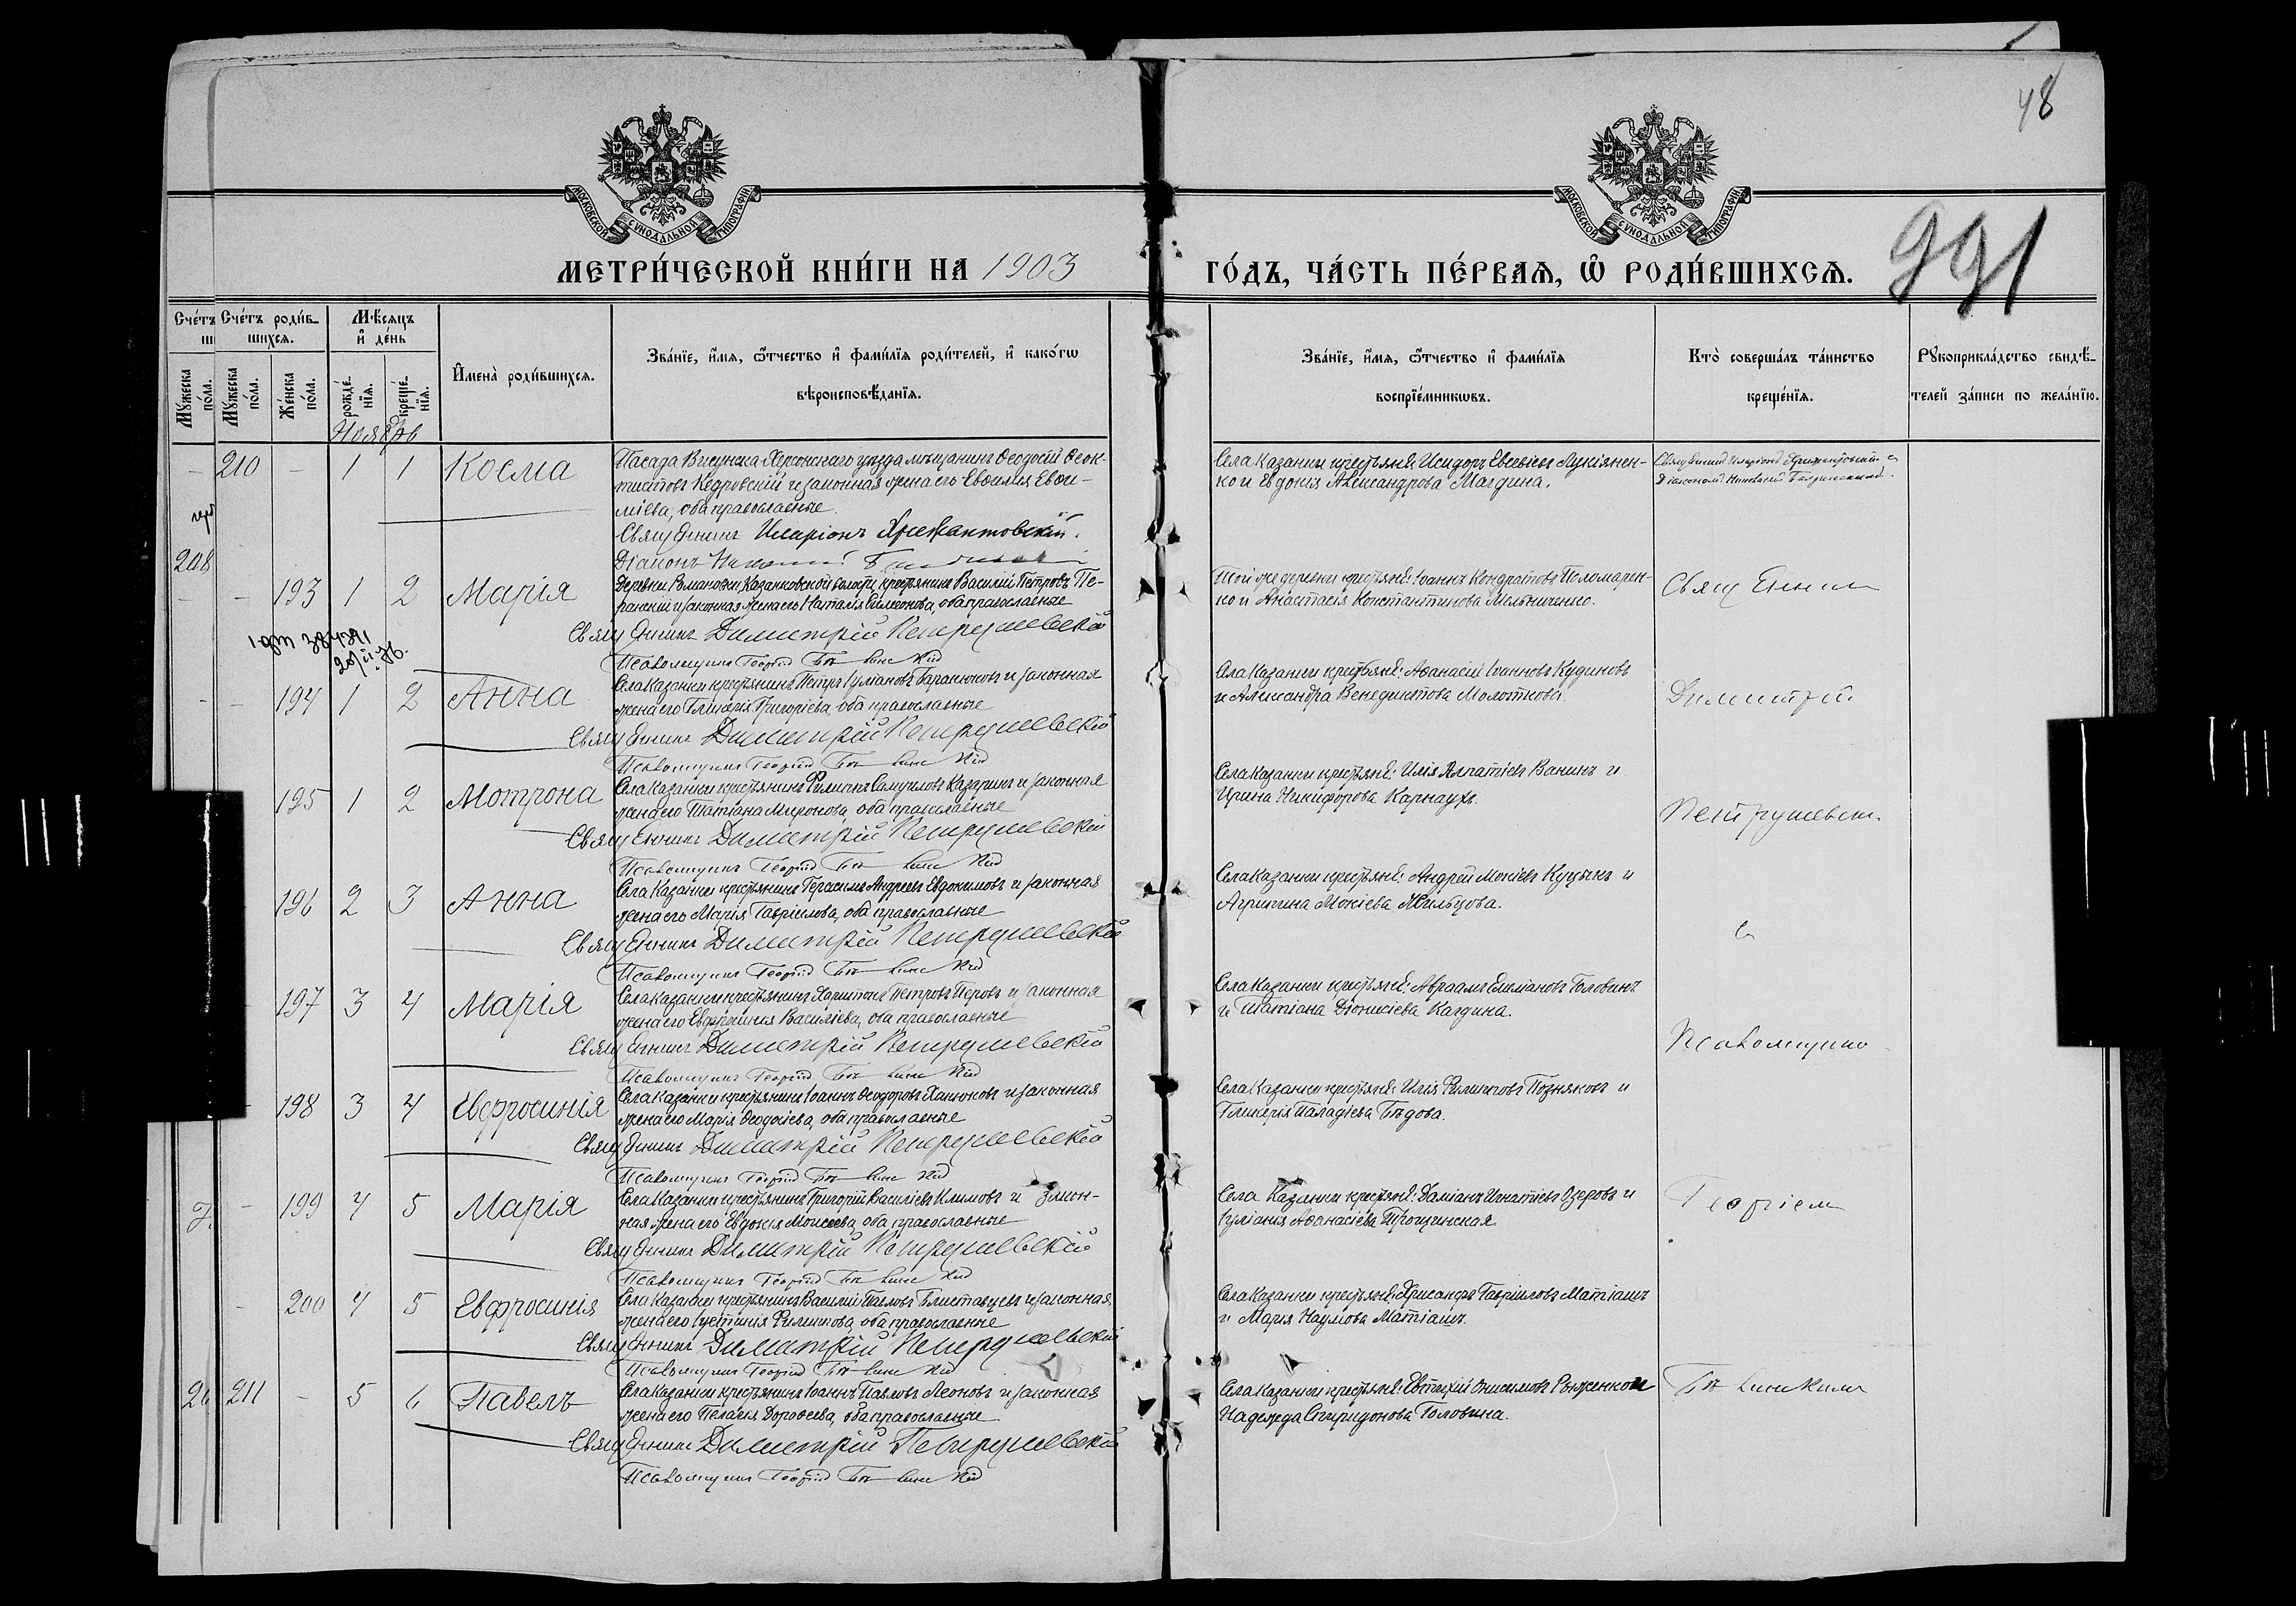 48
МОСКОВСКОЙ СУНОДАЛЬНОЙ ТИПОГРАФІИ
МОСКОВСКОЙ СУНОДАЛЬНОЙ ТИПОГРАФІИ
МЕТРИ́ЧЕСКОЙ КНИ́ГИ НА 1903
ГО́ДЪ, ЧА́СТЬ ПЕ́РВАѦ, Ѡ҆ РОДИ́ВШИХСѦ.
991
Сче́тъ
ш
Сче́тъ роди́в-
шихся.
Мѣ́сяцъ
и҆ де́нь
Му́жеска по́ла.
Му́жеска по́ла.
Же́нска по́ла.
рожде́-нїя.
креще́-нїя.
Ноябрь
И҆мена̀ роди́вшихся.
Зва́нїе, и҆́мя, ѻ҆́тчество и҆ фами́лїя роди́телей, и҆ како́гѡ
вѣроисповѣ́данїя.
Зва́нїе, и҆́мя, ѻ҆́тчество и҆ фами́лїя
воспрїе́мникѡвъ.
Кто̀ соверша́лъ та́инство
креще́нїя.
Рукоприкла́дство свидѣ́-
телей за́писи по жела́нїю.
210 - 1 1 Косма
Посада Висунска Херсонскаго уѣзда мѣщанинъ Ѳеодосій Ѳеок-
тистовъ Кедровскій и законная жена его Евѳимія Евѳи-
міева, оба православные.
Священникъ Иларіонъ
Діаконъ
Села Казанки крестьяне: Исидоръ Евсевіевъ Лукіянен-
ко и Евдокія Александрова Магдина.
Священникъ Иларіонъ
Діакономъ
208
- 193 1 2 Марія
Деревни Романовки, Казанковской волости, крестьянинъ Василій Петровъ Пе-
и законная жена его Наталія Симеонова, оба православные
Священникъ Димитрій Петрушевскій
Псаломщикъ Георгій
Той же деревни крестьяне: Іоаннъ Кондратовъ Пономарен-
ко и Анастасія Константинова Мельниченко.
Священник
- 194 1 2 Анна
Села Казанки крестьянинъ Петръ Іуліановъ Баранюковъ и законная
жена его Гликерія Григоріева, оба православные
Священникъ Димитрій Петрушевскій
Псаломщикъ Георгій
Села Казанки крестьяне: Аѳанасій Іоанновъ Кудиновъ
и Александра Венедиктова Молоткова.
Димитрій
195 1 2 Мотрона
Села Казанки крестьянинъ Филиппъ Самуиловъ Казаринъ и законная
жена его Татіана Миронова, оба православные
Священникъ Димитрій Петрушевскій
Псаломщикъ Георгій
Села Казанки крестьяне: Илія Ипатіевъ Ванинъ и
Ирина Никифорова Карнаухъ.
Петрушевск.
196 2 3 Анна
Села Казанки крестьянинъ Герасимъ Андреевъ Евдокимовъ и законная
жена его Марія Гавріилова, оба православные
Священникъ Димитрій Петрушевскій
Псаломщикъ Георгій
Села Казанки крестьяне: Андрей Мокіевъ Куцынъ и
Агрипина Мокіева Жильцова.
с
197 3 4 Марія
Села Казанки крестьянинъ Харитонъ Петровъ Перовъ и законная
жена его Евфросинія Василіева, оба православные
Священникъ Димитрій Петрушевскій
Псаломщикъ Георгій
Села Казанки крестьяне: Авраамъ Емиліановъ Головинъ
и Татіана Діонисіева Кагдина.
Псаломщико
198 3 4 Евфросинія
Села Казанки крестьянинъ Іоаннъ Ѳеодоровъ Ханюковъ и законная
жена его Марія Ѳеодосіева, оба православные
Священникъ Димитрій Петрушевскій
Псаломщикъ Георгій
Села Казанки крестьяне: Илія Филипповъ Позняковъ и
Гликерія Паладіева Бѣдова.
- 199 4 5 Марія
Села Казанки крестьянинъ Григорій Василіевъ Климовъ и закон-
ная жена его Евдокія Моисеева, оба православные
Священникъ Димитрій Петрушевскій
Псаломщикъ Георгій
Села Казанки крестьяне: Даміанъ Игнатіевъ Озеровъ и
Іуліанія Аѳанасіева Троценская
Георгіем
- 200 4 5 Евфросинія
Села Казанки крестьянинъ Василій Павловъ Блиставцевъ и законная
жена его Іустинія Филиппова, оба православные
Священникъ Димитрій Петрушевскій
Псаломщикъ Георгій
Села Казанки крестьяне: Хрисанфъ Гавріиловъ Матіашъ
и Марія Наумова Матіашъ.
211 - 5 6 Павелъ
Села Казанки крестьянинъ Іоаннъ Павловъ Леоновъ и законная
жена его Пелагія Дороѳеева, оба православные
Священникъ Димитрій Петрушевскій
Псаломщикъ Георгій
Села Казанки крестьяне: Евтихій Онисимовъ Рыженко и
Надежда Спиридонова Головина.